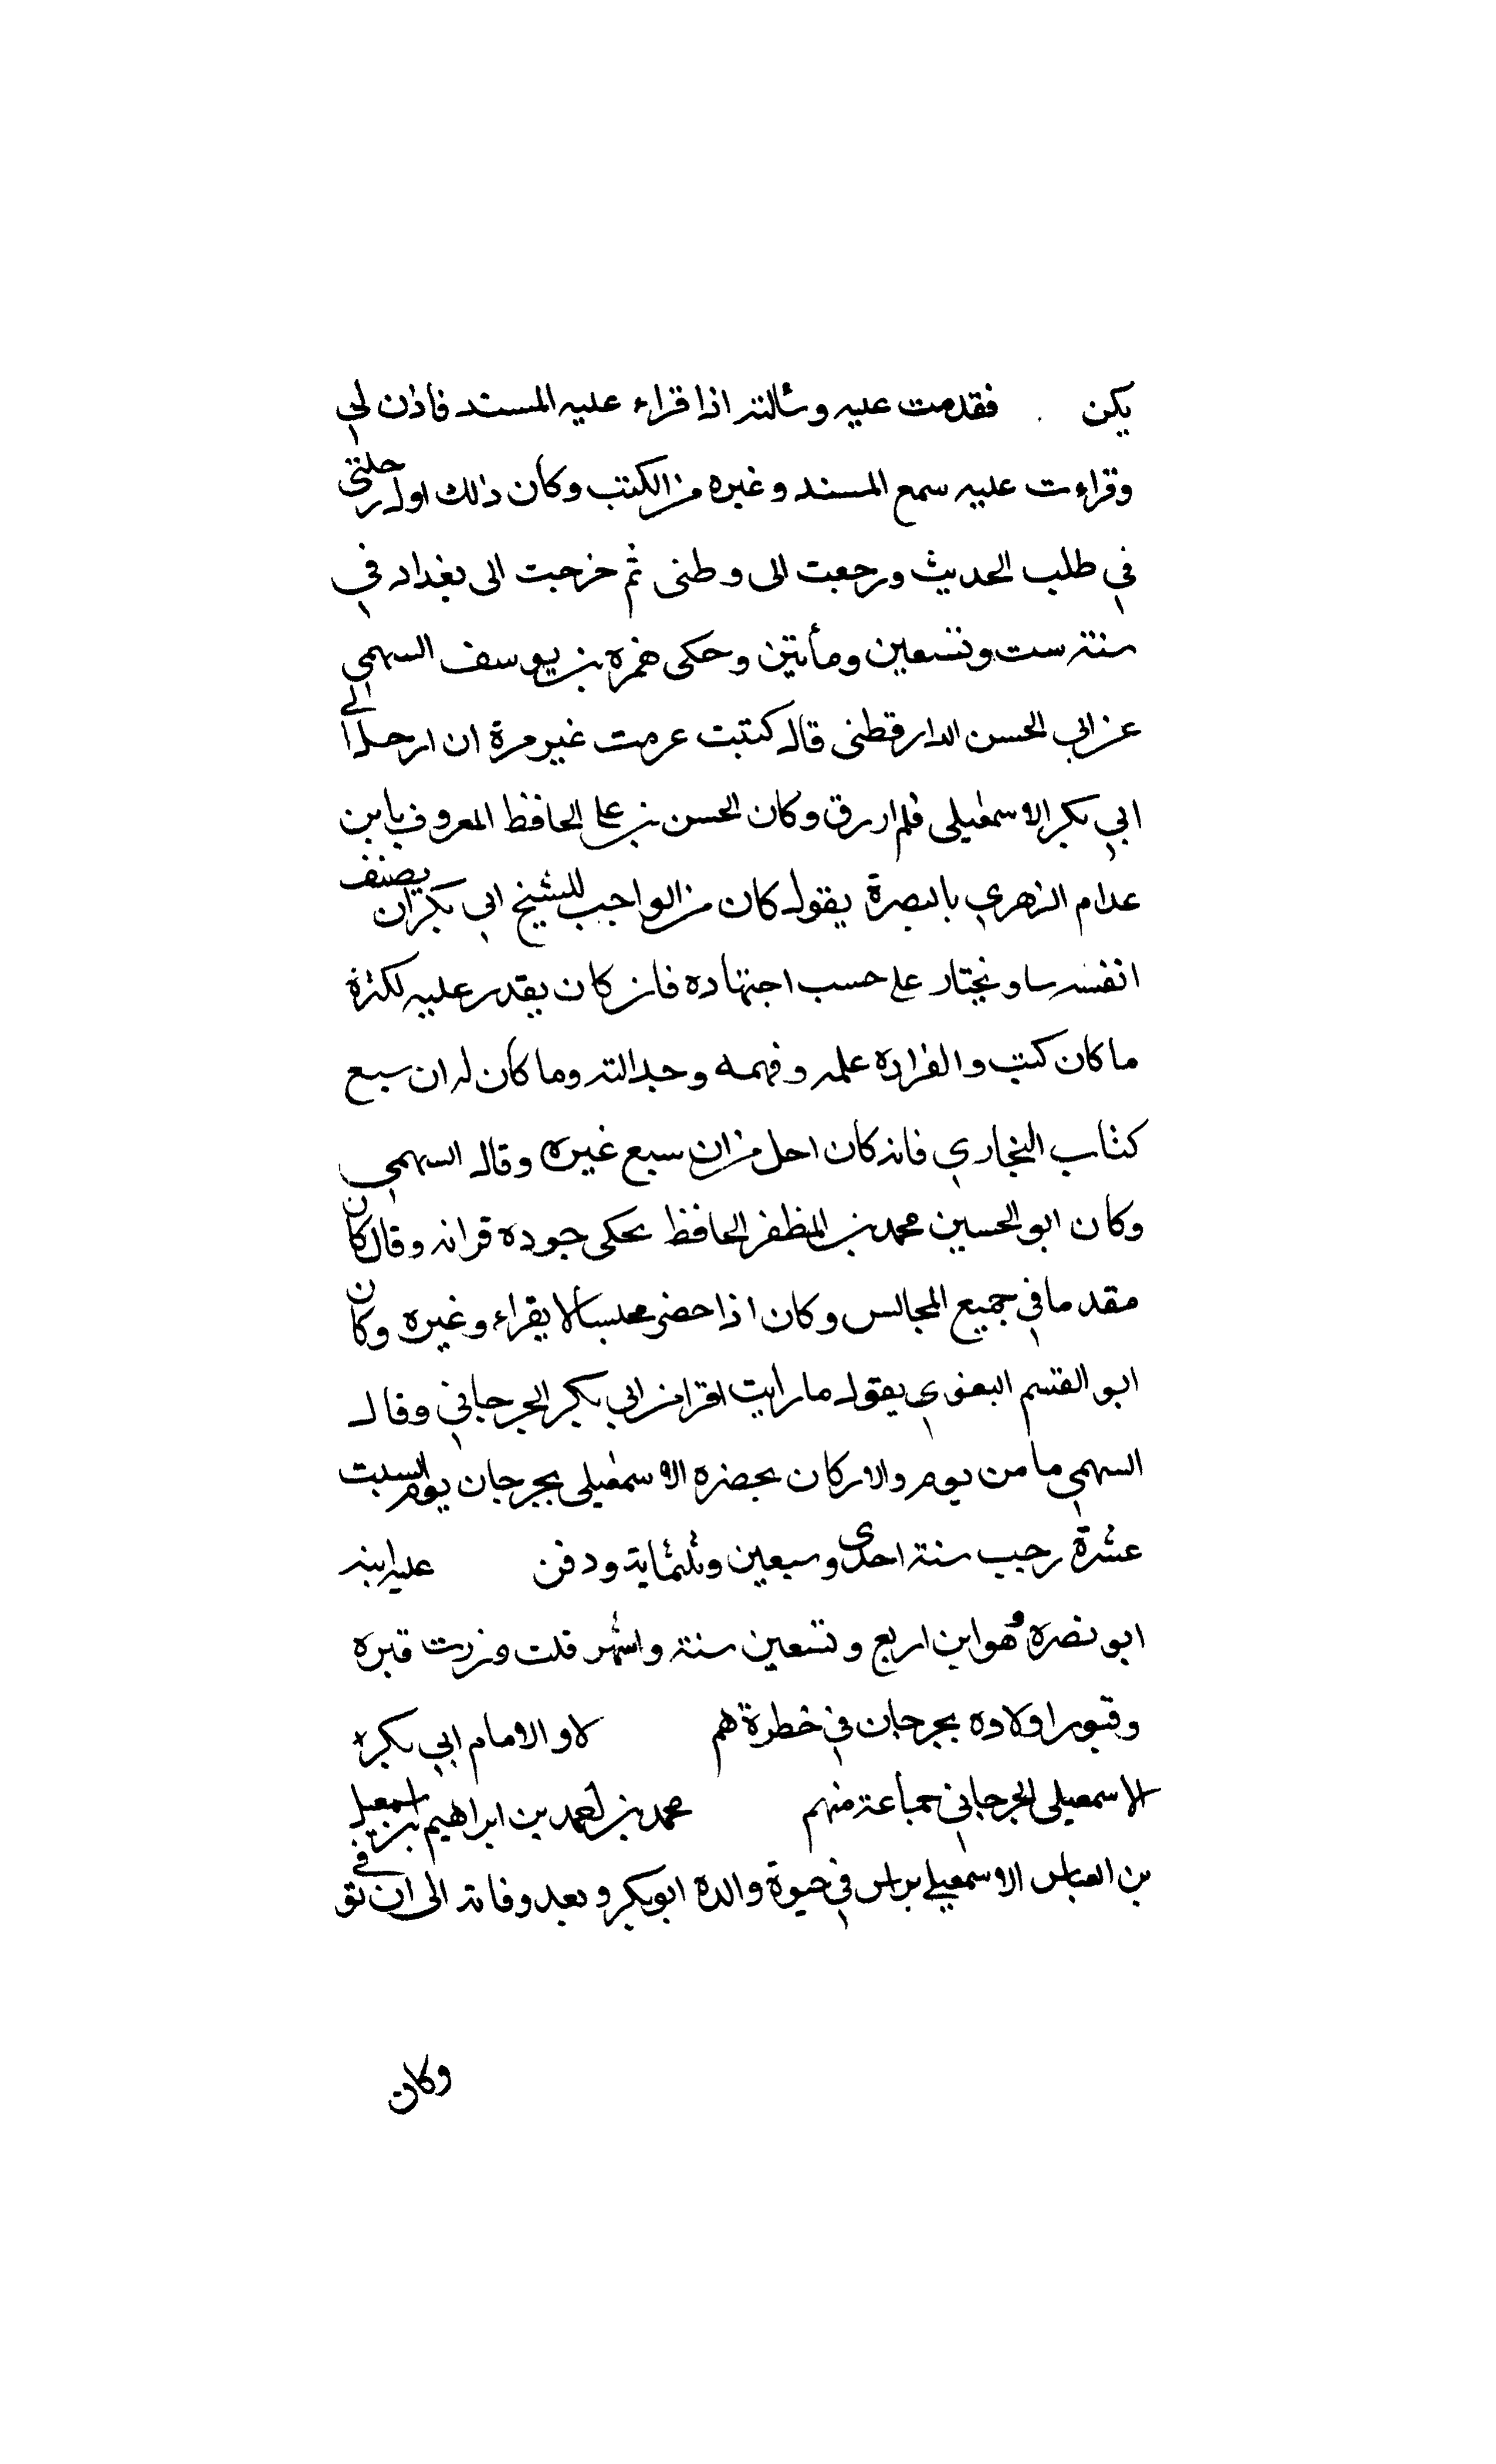 يكن فقدمت عليه وسالته اذا قراء عليه المسند فاذن لي
وقراءت عليه سمع المسند وغيره من الكتب وكان ذلك اول رحلتي
في طلب الحديث ورجعت الى وطنى ثم خرجت الى بغداد في
سنة ست وتسعين ومأتين وحكى حمزه بن يوسف السهمي
عن ابي الحسن الدارقطنى قال كتبت عزمت غير مرة ان ارحل الى
ابي بكر الاسمعيلى فلم ارزق وكان الحسن بن على الحافظ المعروف بابن
عدام الزهري بالبصرة يقول كان من الواجب للشيخ ابي بكر ان يصنف
انفسه ويختار على حسب اجتهاده فان كان يقدر عليه لكثرة
ما كان كتب والغزارة علمه وفهمه وجلالته وما كان له ان سبع
كتاب البخاري فانه كان اجل من ان سبع غيره وقال السهمي
وكان ابو الحسين محمد بن المظفر الحافظ يحكى جوده قرانه وقال كان
مقدما في جميع المجالس وكان اذا حضر مجلسا لا يقراء وغيره وكان
ابو القسم البغوي يقول ما رايت اقرا من ابي بكر الجرجاني وقال
السهمي ما من يوم والا وكان بحضره الاسمعيلى بجرجان يوم السبت
عشرة رجب سنة احدى وسبعين وثلثماية ودفن عليه ابنه
ابو نصره وهو ابن اربع وتسعين سنة واشهر قلت وزرت قبره
وقبور اولاده بجرجان في خطرة هم لاو الامام ابي بكر
الاسمعيلى الجرجاني جماعة منهم محمد بن احمد بن ابراهيم بن اسمعيل
بن العباس الاسمعيلي براس في حيوة والده ابو بكر وبعد وفاته الى ان توفي
وكان